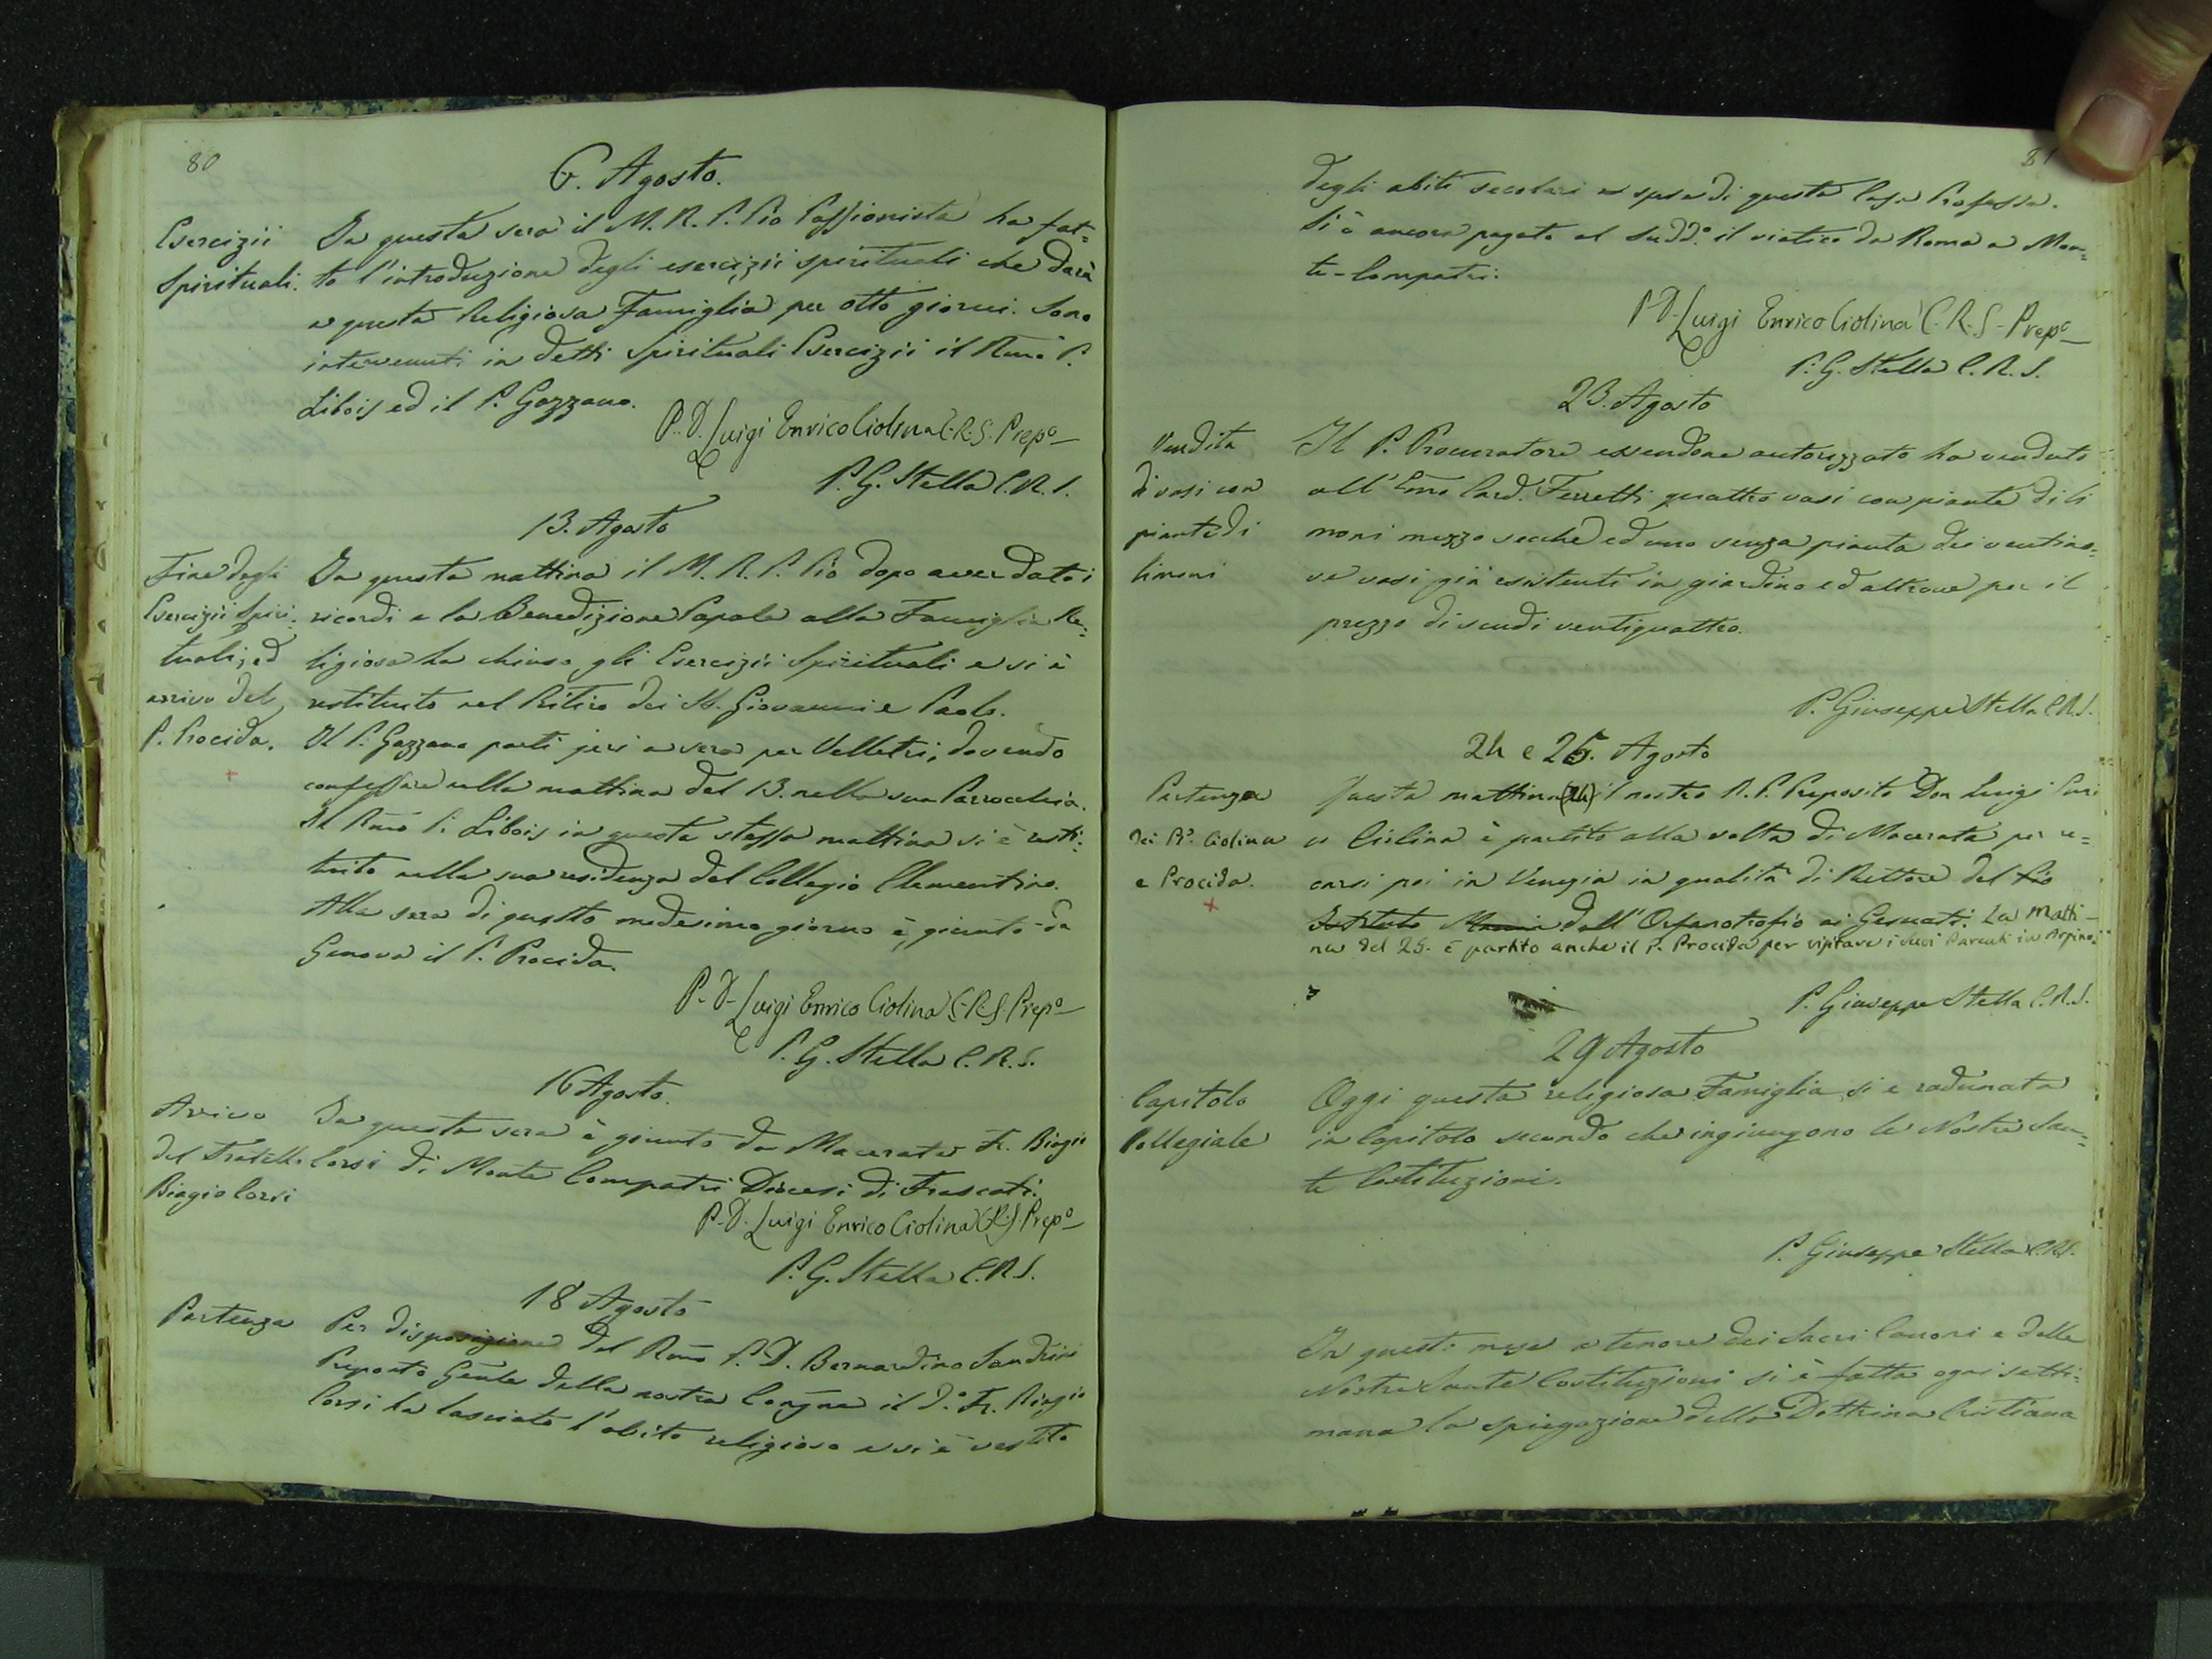 80
6. Agosto.
Esercizii
Spirituali.
In questa sera il M. R. P. Pio Passionista ha fat=
to l'introduzione degli esercizii spirituali che darà
a questa Religiosa Famiglia per otto giorni. Sono
intervenuti in detti Spirituali Esercizii il Rmo P.
Libois ed il P. Gazzano.
P. D. Luigi Enrico Ciolina C. R. S. Prepo
P. G. Stella C. R. S.
13. Agosto
Fine degli
Esercizii Spiri
tuali, ed
arrivo del
P. Procida.
In questa mattina il M. R. P. Pio dopo aver dato i
ricordi e la Benedizione Papale alla Famiglia Re=
ligiosa ha chiuso gli Esercizii Spirituali e si è
restituito nel Ritiro dei SS. Giovanni e Paolo.
Il P. Gazzano partì jeri a sera per Velletri, dovendo
confessare nella mattina del 13. nella sua Parrocchia.
Il Rmo P. Libois in questa stessa mattina si è resti=
tuito nella sua residenza del Collegio Clementino.
Alla sera di questo medesimo giorno è giunto da
Genova il P. Procida.
P. D. Luigi Enrico Ciolina C. R. S. Prepo
P. G. Stella C. R. S.
16 Agosto.
Arrivo
del Fratello
Biagio Corsi
In questa sera è giunto da Macerata Fr. Biagio
Corsi di Monte Compatri Diocesi di Frascati.
P. D. Luigi Enrico Ciolina C. R. S. Prepo
P. G. Stella C. R. S.
18 Agosto
Partenza
Per disposizione del Rmo P. D. Bernardino Sandrini
Preposto Gen̄le della nostra Congne il do. Fr. Biagio
Corsi ha lasciato l'abito religioso e si è vestito
81
degli abiti secolari a spese di questa Casa Professa.
Si è ancora pagato al sudd.o il viatico da Roma a Mon=
te-Compatri.
P. D. Luigi Enrico Ciolina C. R. S. Prepo
P. G. Stella C. R. S.
23. Agosto
Vendita
di vasi con
piante di
limoni
Il P. Procuratore essendone autorizzato ha venduto
all'Emo Card. Ferretti quattro vasi con piante di li
moni mezzo secche ed uno senza pianta dei ventino=
ve vasi già esistenti in giardino ed altrove per il
prezzo di scudi ventiquattro.
P. Giuseppe Stella C. R. S.
24 e 25. Agosto
Partenza
dei PP. Ciolina
e Procida.
Questa mattina (24) il nostro R. P. Preposito Don Luigi
Ciolina è partito alla volta di Macerata per re=
carsi poi in Venezia in qualità di Rettore del Pio
Istituto Manin dell'Orfanotrofio ai Gesuati. La Matti-
na del 25. è partito anche il P. Procida per visitare i suoi Parenti in Arpino.
P. Giuseppe Stella C. R. S.
29 Agosto
Capitolo
Collegiale
Oggi questa religiosa Famiglia si è radunata
in Capitolo secondo che ingiungono le Nostre San=
te Costituzioni.
P. Giuseppe Stella C. R. S.
In questo mese a tenore dei Sacri Canoni e delle
Nostre Sante Costituzioni si è fatta ogni setti=
mana la spiegazione della Dottrina Cristiana